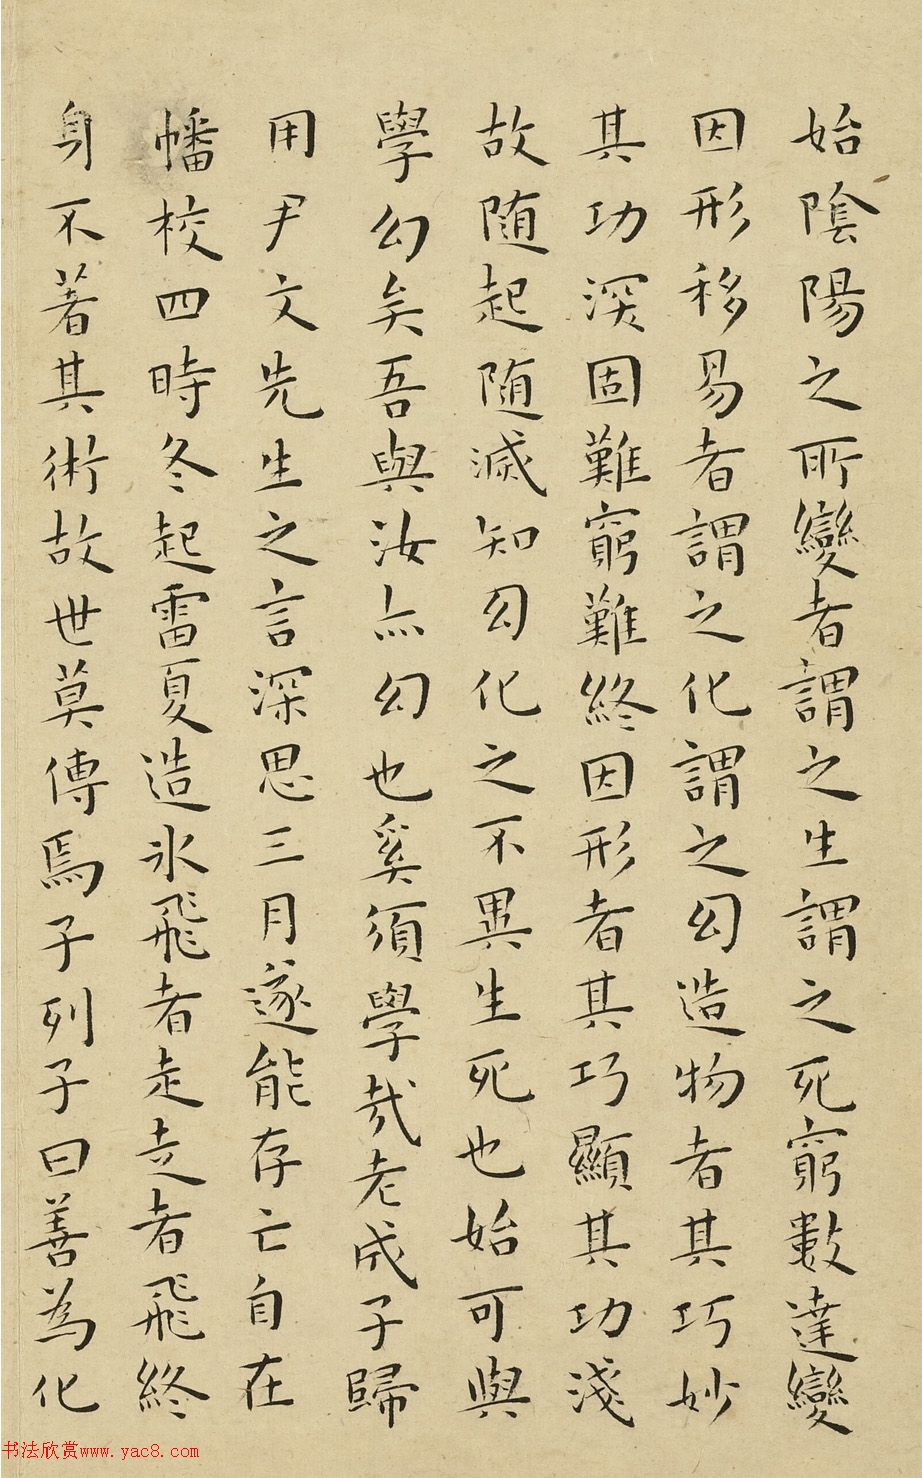 始陰陽之所變者謂之生謂之死窮數達變
因形移易者謂之化謂之幻造物者其巧妙
其功深固難窮難終因形者其巧顯其功淺
故随起随滅知幻化之不異生死也始可與
學幻矣吾與汝亦幻也奚須學哉老成子歸
用尹文先生之言深思三月遂能存亡自在
幡校四時冬起雷夏造氷飛者走走者飛終
身不著其術故世莫傳焉子列子曰善為化
书法欣赏www.yac8.com